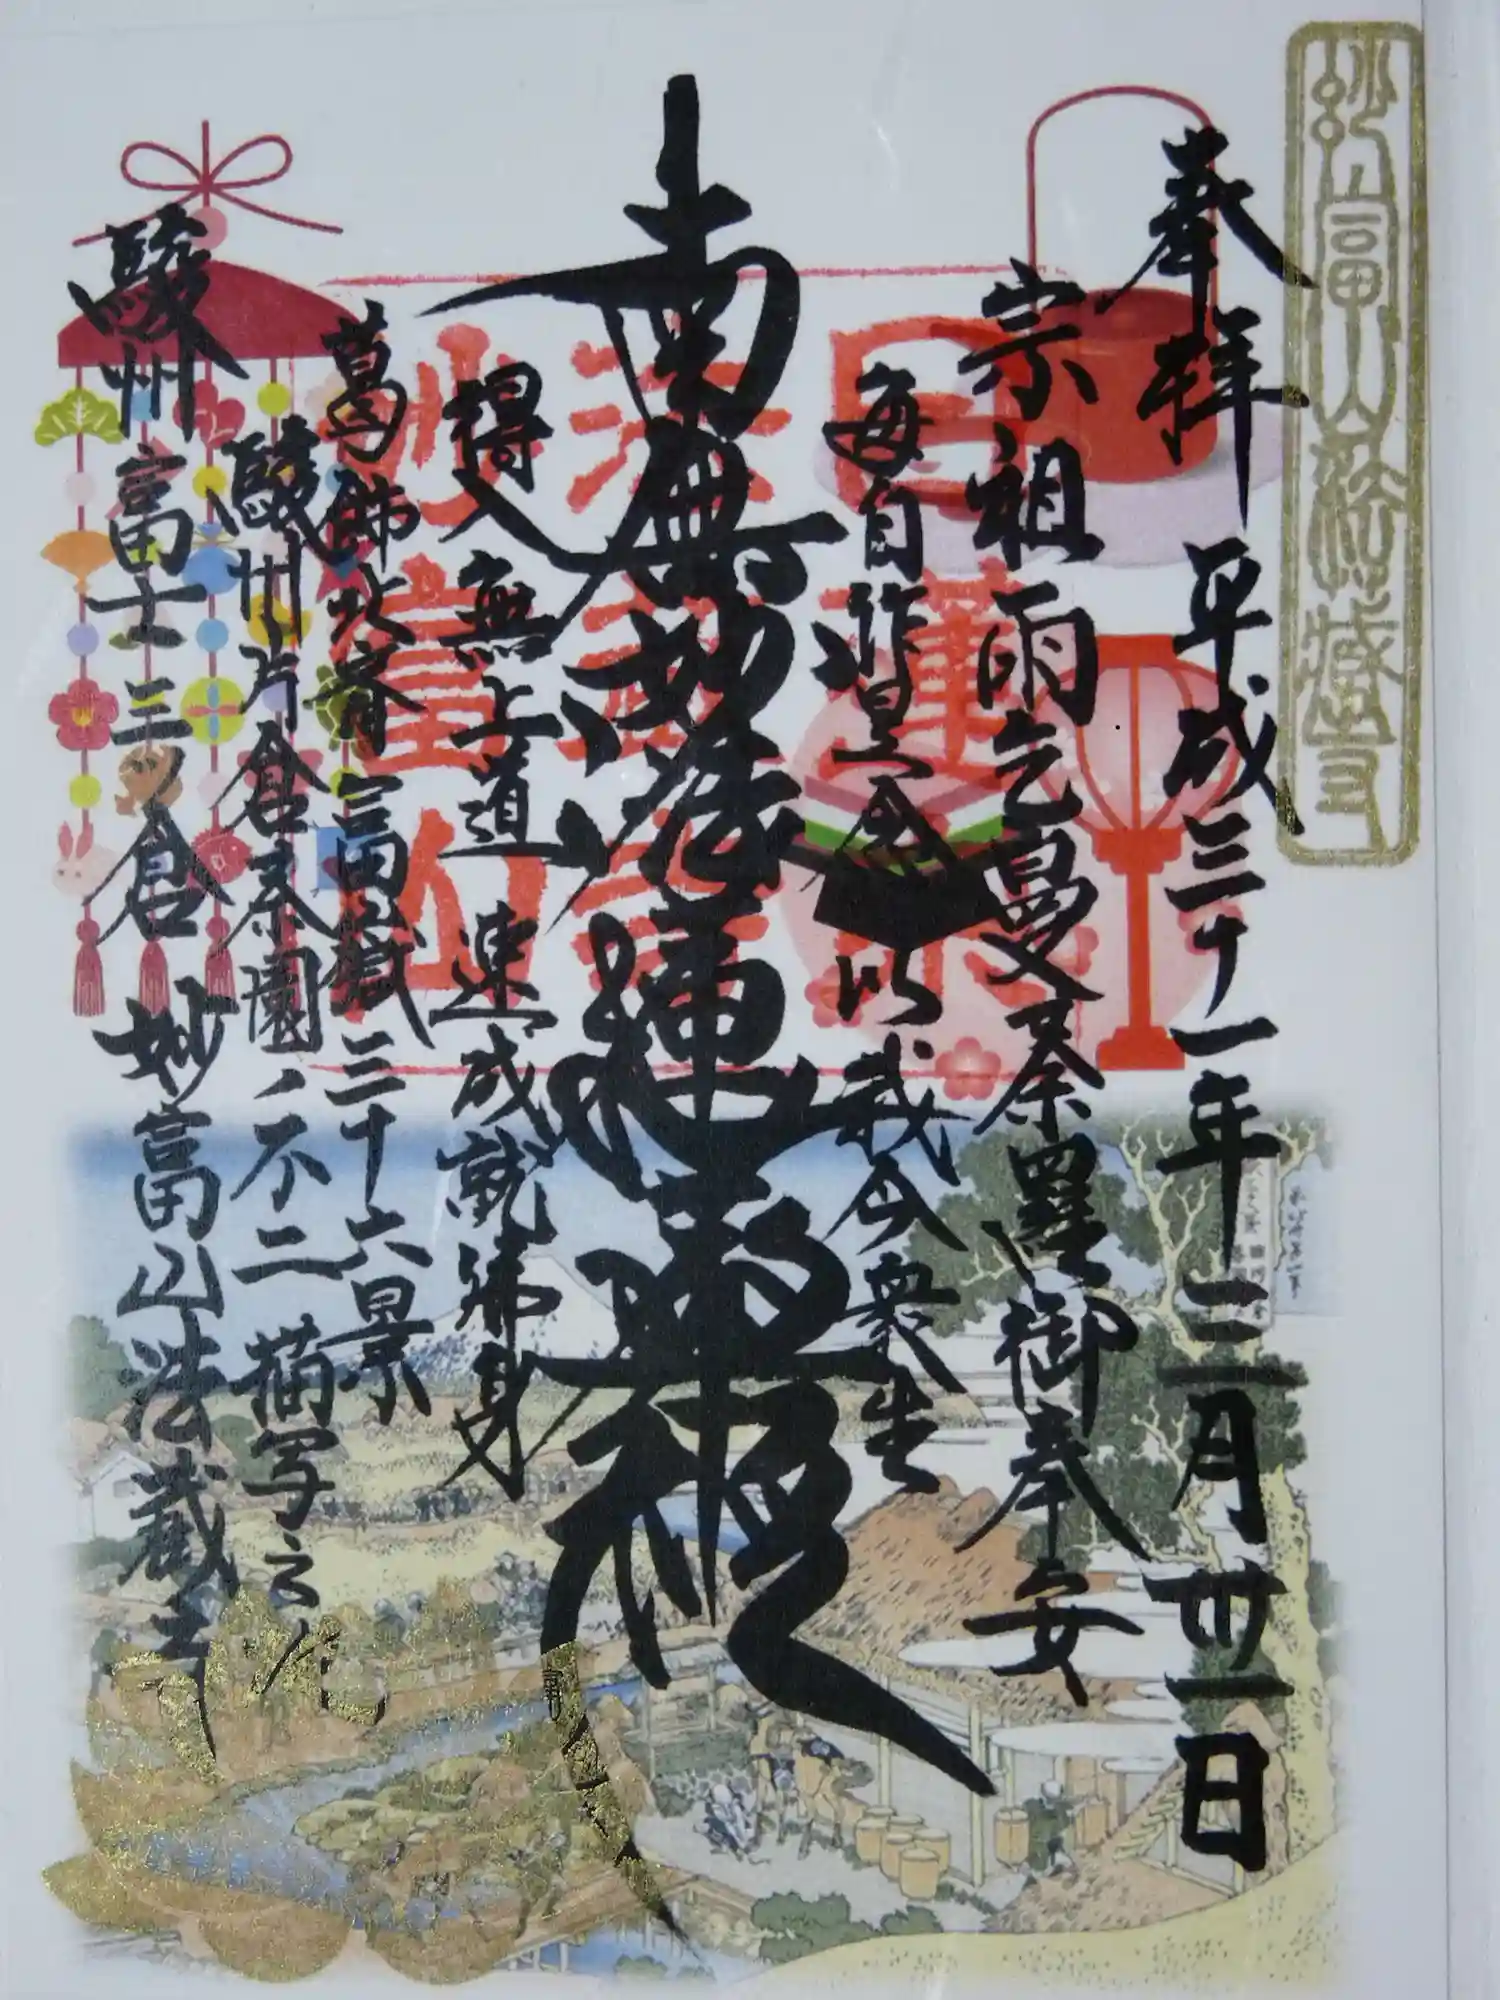 妙富山法蔵寺
奉拝 平成三十一年三月卅一日
宗祖雨乞曼荼羅御奉安
毎自作是念 以我令衆生
南無妙法蓮華経
得入無上道 速成就佛身
葛飾北斎 富嶽三十六景
駿州片倉茶園ノ不二 描写之地
駿州富士三ノ倉 妙富山法蔵寺
日蓮宗
法蔵寺
妙富山